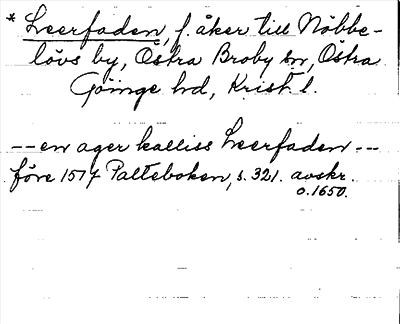 * Leerfaden, f. åker till Nöbbe-
lövs by, Östra Broby sn, Östra
Göinge hd, Krist. l.
-- en ager kalliss Leerfaden --
före 1517 Palteboken, s. 321. avskr.
o. 1650.